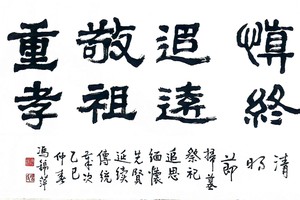 慎終
追遠
敬祖
重孝
清明
節
掃墓
祭祀
追思
缅懷
先賢
延续
傳统
歲次
乙巳
仲春
馮錦萍